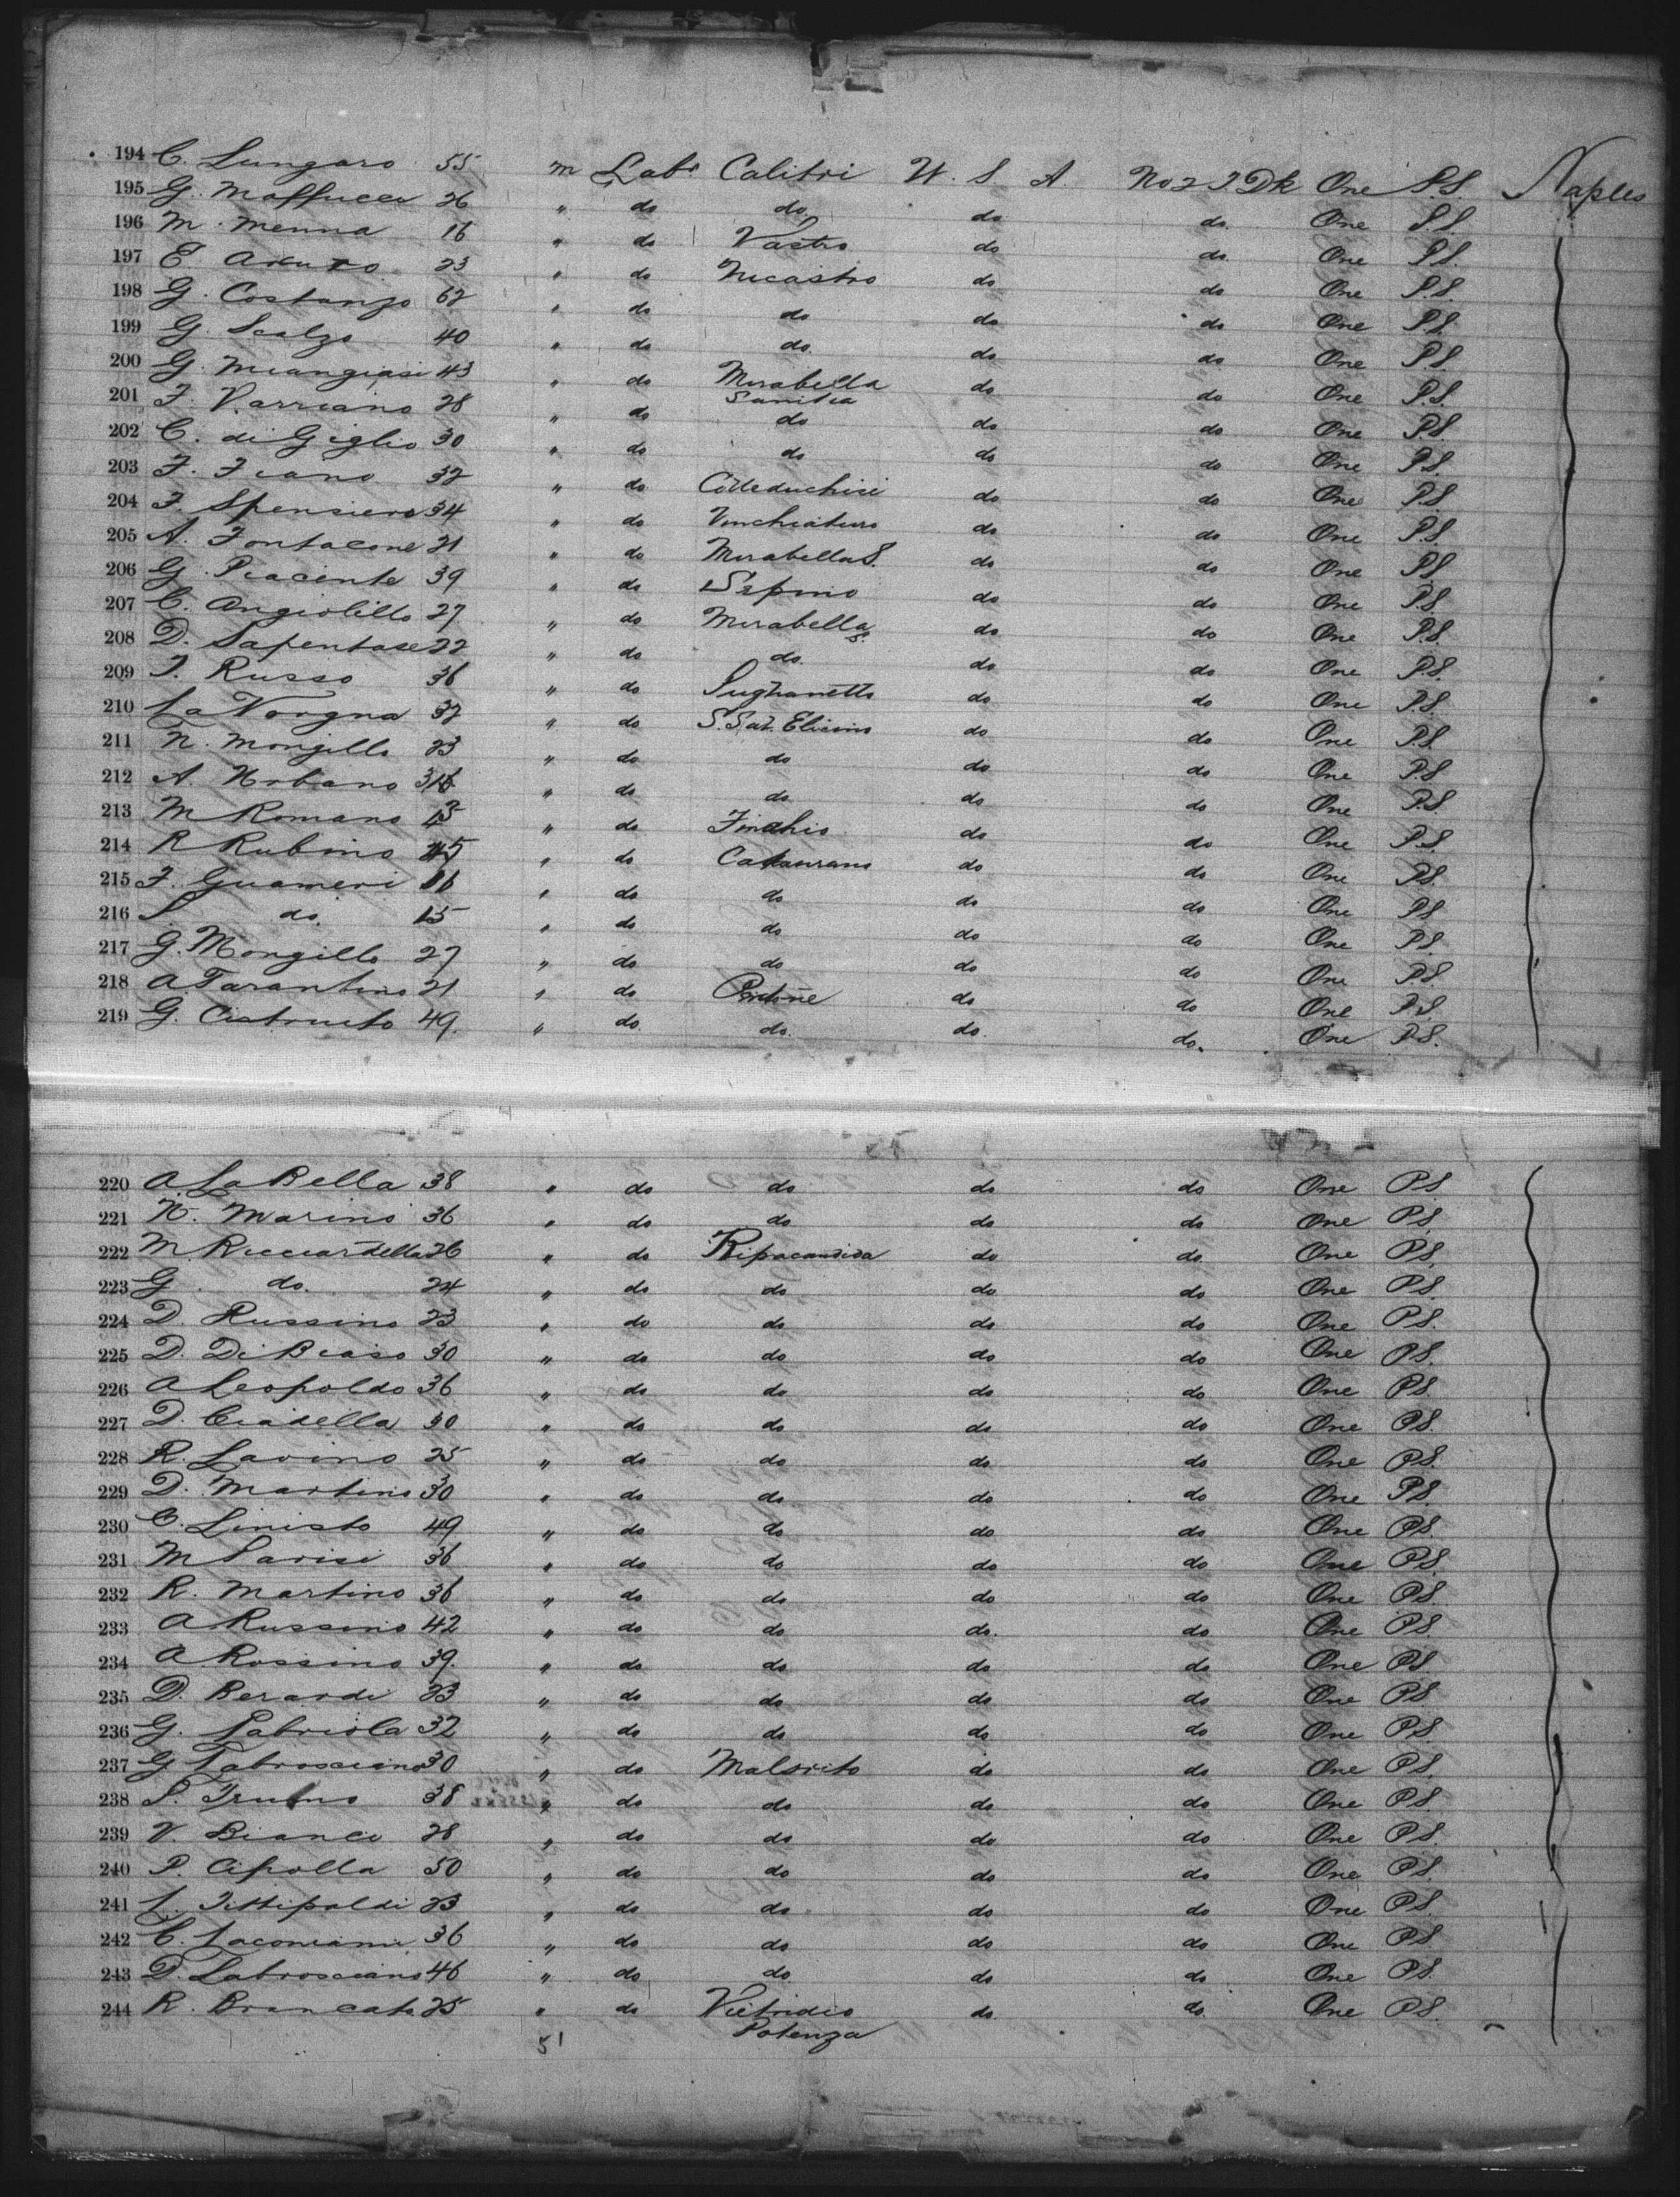 194 C. Lungaro 55 m Labr Calitri U. S. A. No 2 J Dk One P.S. Naples
195 G. Maffucci 26 " do do. do do. One P.S.
196 M. Menna 16 " do Vastro do do. One P.S.
197 E. 23 " do Nicastro do do One P.S.
198 G. Costanzo 62 " do do do do One P.S.
199 G. Scalzo 40 " do do. do do One P.S.
200 G. 43 " do Mirabella Sanitia do do One P.S.
201 F. Varriano 28 " do do do do One P.S.
202 C. di Giglio 30 " do do do do One P.S.
203 F. Fiano 32 " do do do One P.S.
204 F. Spensiero 34 " do Vinchiaturo do do One P.S.
205 A. Fontacone 21 " do Mirabella S. do do One P.S.
206 G. Piacente 39 " do Sepino do do One P.S.
207 C. Angiolillo 27 " do Mirabella S. do do One P.S.
208 D. 22 " do do. do do One P.S.
209 T. Russo 36 " do do do One P.S.
210 La Vorgna 32 " do do do One P.S.
211 N. Mongillo 23 " do do do do One P.S.
212 A. Urbano " do do do do One P.S.
213 M Romano " do do do One P.S.
214 R Rubino 45 " do do do One P.S.
215 F. Guarneri 16 " do do do do One P.S.
216 S do. 15 " do do do do One P.S.
217 G. Mongillo 27 " do do do do One P.S.
218 A. Tarantino 21 " do do do One P.S.
219 G. 49. " do do. do. do. One P.S.
220 A. La Bella 38 " do do do do One P.S.
221 N. Marino 36 " do do do do One P.S.
222 M Ricciardella 26 " do Ripacandida do do One P.S.
223 G. do. 24 " do do do do One P.S.
224 D. Russino 23 " do do do do One P.S.
225 D. Di Biaso 30 " do do do do One P.S.
226 A Leopoldo 36 " do do do do One P.S.
227 D. Ciadella 30 " do do do do One P.S.
228 R. Lavino 25 " do do do do One P.S.
229 D. Martino 30 " do do do do One P.S.
230 C. Linisto 49 " do do do do One P.S.
231 M 36 " do do do do One P.S.
232 R. Martino 36 " do do do do One P.S.
233 A Russino 42 " do do do. do One P.S.
234 A. Rossino 39. " do do do do One P.S.
235 D. Berardi 23 " do do do do One P.S.
236 G. Labriola 32 " do do do do One P.S.
237 G Labrosciano 30 " do Malvito do do One P.S.
238 S. 38 " do do do do One P.S.
239 V. Bianco 28 " do do do do One P.S.
240 P. Cipolla 50 " do do do do One P.S.
241 L. Tittipaldi 23 " do do do do One P.S.
242 C. 36 " do do do do One P.S.
243 D. Labrosciano 46 " do do do do One P.S.
244 R. Brancato 25 " do do. do. One P.S.
51 Potenza